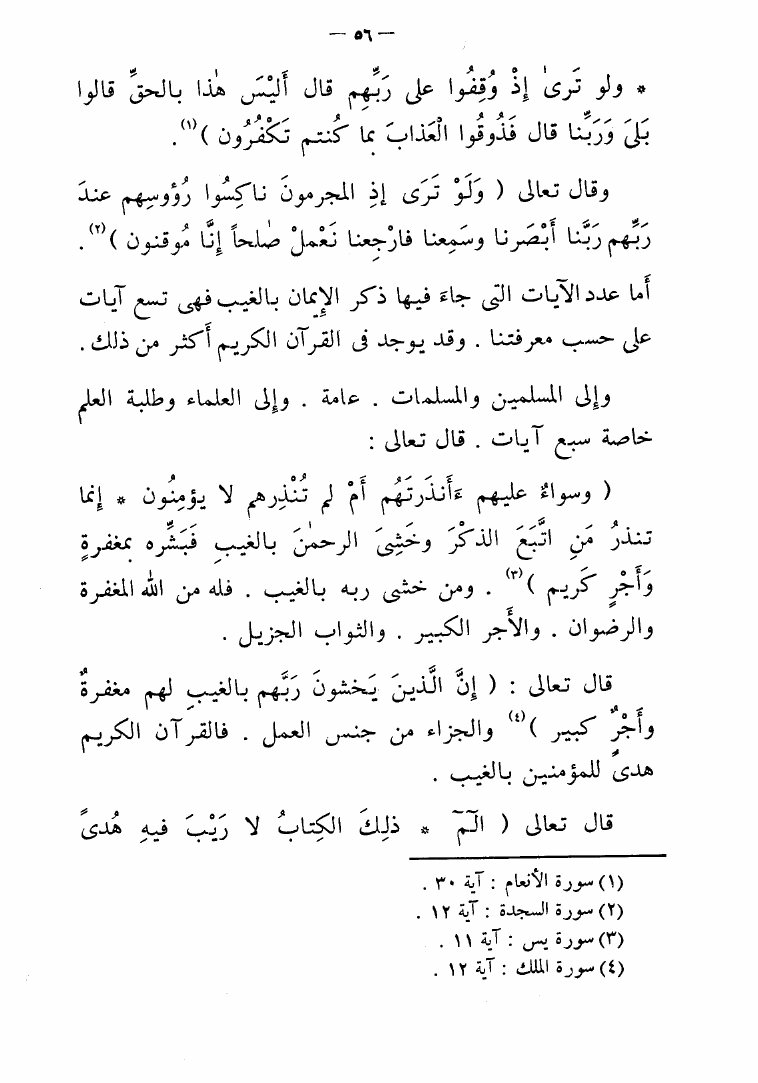 — ٥٦ —
* ولو تَرىٰ إِذْ وُقِفُوا على رَبِّهِم قال أَلَيْسَ هٰذا بالحقِّ قالوا
بَلَىٰ وَرَبِّنا قال فَذُوقُوا الْعَذابَ بما كُنتم تَكْفُرُون )(١).
وقال تعالى ( وَلَوْ تَرَى إذِ المجرمونَ ناكِسُوا رُؤوسِهم عندَ
رَبِّهم رَبَّنا أَبْصَرنا وسَمِعنا فارْجِعنا نَعْملْ صٰلحاً إنَّا مُوقنون )(٢).
أما عدد الآيات التى جاءَ فيها ذكر الإيمان بالغيب فهى تسع آيات
على حسب معرفتنا . وقد يوجد فى القرآن الكريم أكثر من ذلك .
وإلى المسلمين والمسلمات . عامة . وإلى العلماء وطلبة العلم
خاصة سبع آيات . قال تعالى :
( وسواءٌ عليهم ءَأَنذَرتَهُم أَمْ لم تُنْذِرهم لا يؤمِنُون * إنما
تنذرُ مَنِ اتَّبَعَ الذكْرَ وخَشِىَ الرحمٰنَ بالغيبِ فَبَشِّره بمغفرةٍ
وَأَجْرٍ كَريم )(٣) . ومن خشى ربه بالغيب . فله من الله المغفرة
والرضوان . والأَجر الكبير . والثواب الجزيل .
قال تعالى : ( إنَّ الَّذينَ يَخشونَ رَبَّهم بالغيبِ لهم مغفرةٌ
وأَجْرٌ كبير )(٤) والجزاء من جنس العمل . فالقرآن الكريم
هدىً للمؤمنين بالغيب .
قال تعالى ( الٓمٓ * ذلِكَ الكِتابُ لا رَيْبَ فيهِ هُدىً
(١) سورة الأنعام : آية ٣٠ .
(٢) سورة السجدة : آية ١٢ .
(٣) سورة يس : آية ١١ .
(٤) سورة الملك : آية ١٢ .